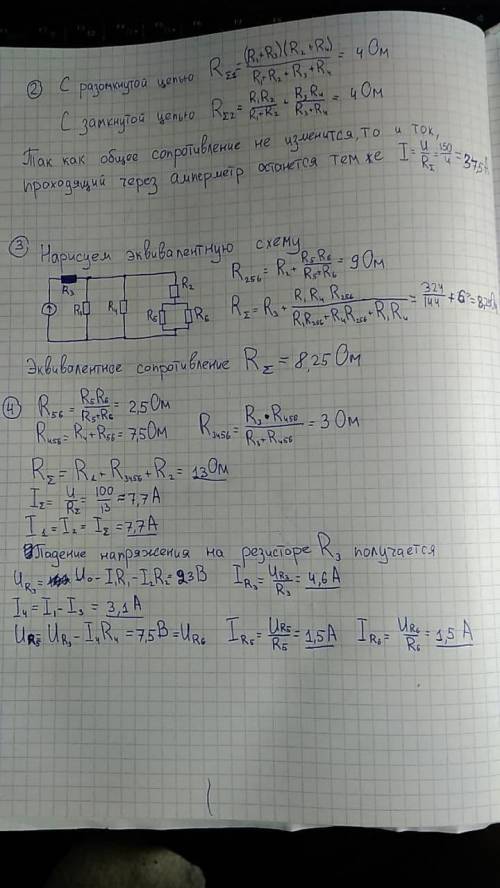 ② С разомкнутой цепью R_Σ1 = (R₁+R₃)(R₂+R₄) / (R₁+R₂+R₃+R₄) = 4 Ом
С замкнутой цепью R_Σ2 = R₁R₂/(R₁+R₂) + R₃R₄/(R₃+R₄) = 4 Ом
Так как общее сопротивление не изменится, то и ток,
проходящий через амперметр останется тем же I = U/R_Σ = 150/4 = 37,5 А
③ Нарисуем эквивалентную схему
R₃ R₁ R₄ R₂ R₅ R₆
R₂₅₆ = R₂ + R₅R₆/(R₅+R₆) = 9 Ом
R_Σ = R₃ + R₁R₄R₂₅₆ / (R₁R₂₅₆+R₄R₂₅₆+R₁R₄) = 324/144 + 6 = 8,25
Эквивалентное сопротивление R_Σ = 8,25 Ом
④ R₅₆ = R₅R₆/(R₅+R₆) = 2,5 Ом
R₄₅₆ = R₄ + R₅₆ = 7,5 Ом R₃₄₅₆ = R₃·R₄₅₆/(R₃+R₄₅₆) = 3 Ом
R_Σ = R₁ + R₃₄₅₆ + R₂ = 13 Ом
I_Σ = U/R_Σ = 100/13 = 7,7 А
I₁ = I₂ = I_Σ = 7,7 А
Падение напряжения на резисторе R₃ получается
U_R₃ = U₀ - I₁R₁ - I₂R₂ = 23 В I_R₃ = U_R₃/R₃ = 4,6 А
I₄ = I₁ - I₃ = 3,1 А
U_R₅ = U_R₃ - I₄R₄ = 7,5 В = U_R₆ I_R₅ = U_R₅/R₅ = 1,5 А I_R₆ = U_R₆/R₆ = 1,5 А